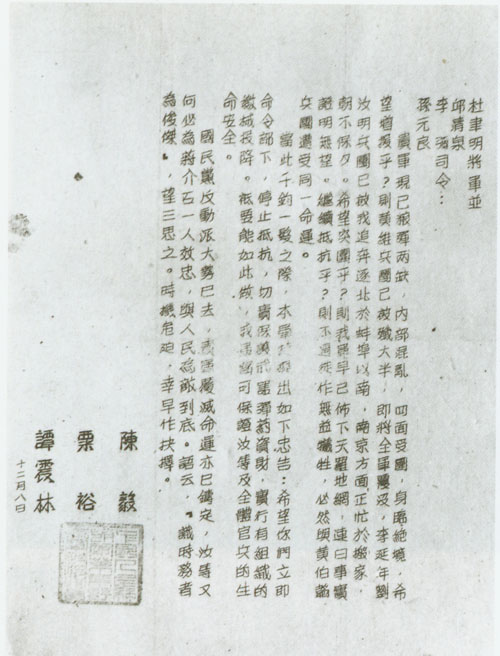 杜聿明將軍並
邱清泉
李　彌司令：
孫元良
貴軍現已飛彈兩缺，內部混亂，四面受圍，身臨絕境。希
望增援乎？則黃維兵團已被殲大半，即將全軍覆沒，李延年劉
汝明兵團已被我追奔逐北於蚌埠以南，南京方面正忙於搬家，
朝不保夕。希望突圍乎？則我軍早已佈下天羅地網，連日事實
證明無望。繼續抵抗乎？則不過死作無益犧牲，必然與黃伯韜
兵團遭受同一命運。
當此千鈞一髮之際，本軍特提出如下忠告：希望你們立即
命令部下，停止抵抗，切實保護武器彈葯資財，實行有組織的
繳械投降。祇要能如此做，我軍當可保證汝等及全體官兵的生
命安全。
國民黨反動派大勢已去，覆滅命運亦已鑄定，汝等又
何必為蔣介石一人效忠，與人民為敵到底。語云，“識時務者
為俊傑”，望三思之。時機危迫，幸早作抉擇。
陳　毅
粟　裕
譚震林
十二月八日